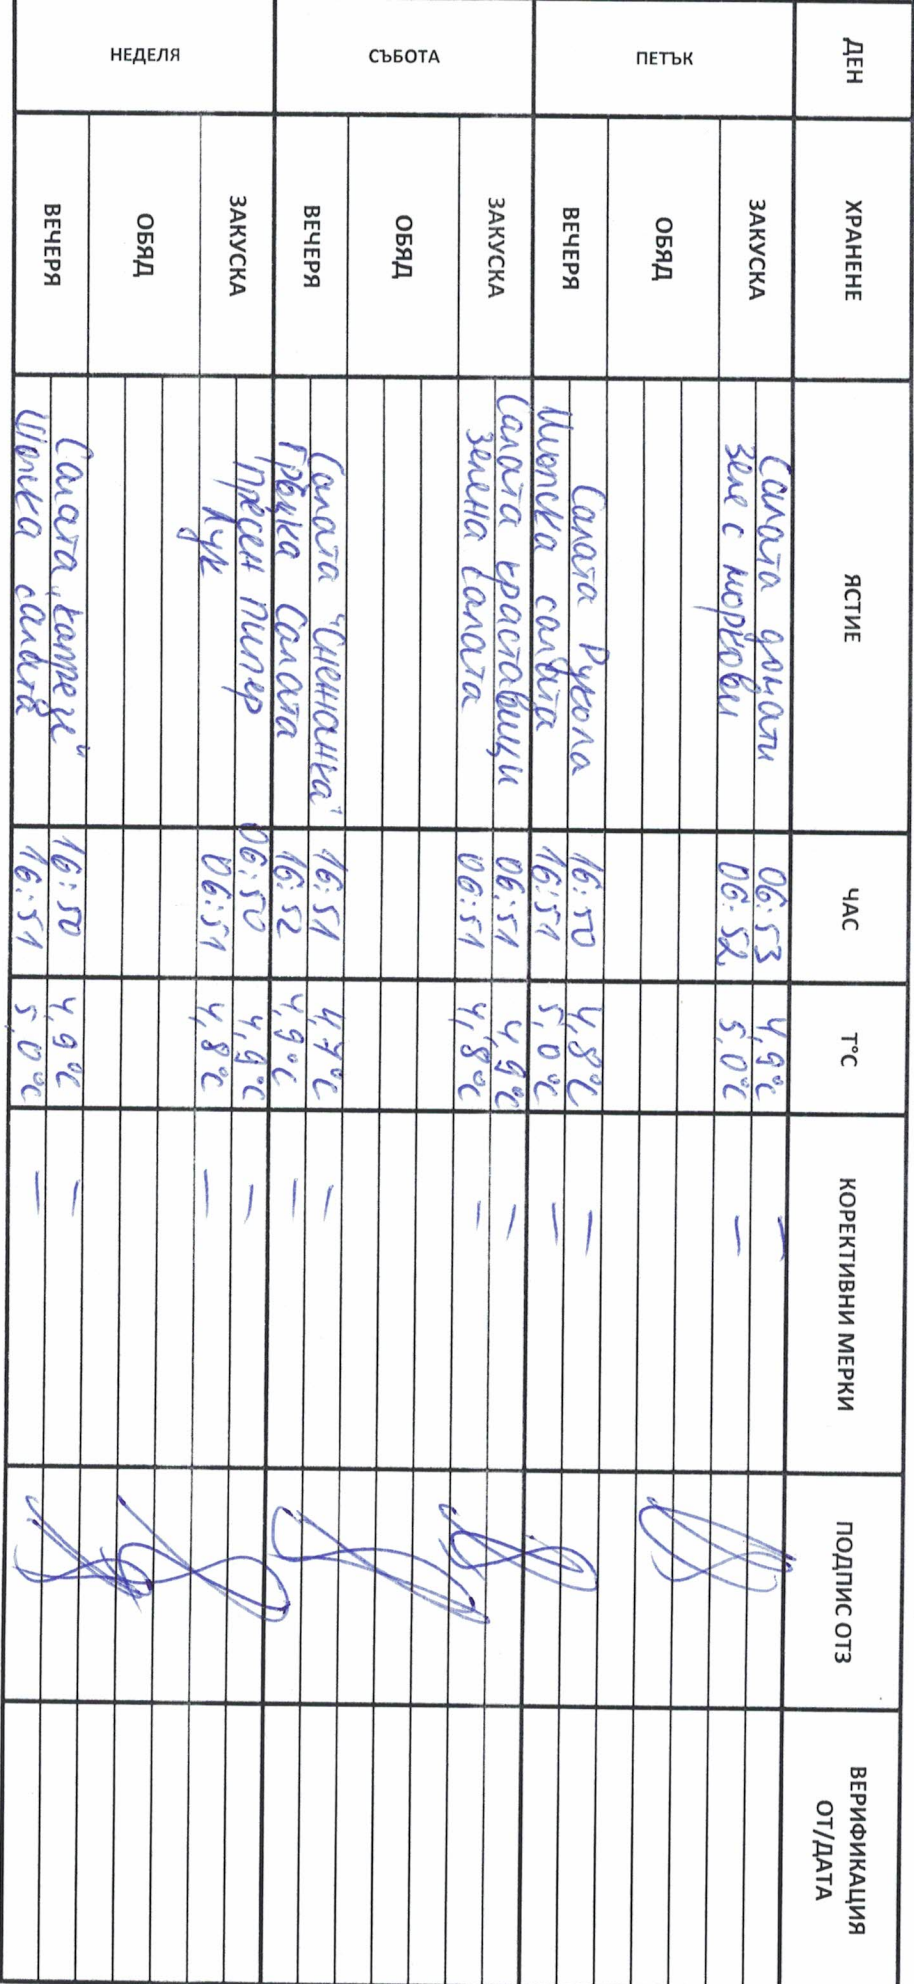 ДЕН ХРАНЕНЕ ЯСТИЕ ЧАС T°C КОРЕКТИВНИ МЕРКИ ПОДПИС ОТЗ ВЕРИФИКАЦИЯ ОТ/ДАТА
ПЕТЪК
ЗАКУСКА
Салата домати 06:53 4,9°C –
Зеле с моркови 06:52 5,0°C –
ОБЯД
ВЕЧЕРЯ
Салата Рукола 16:50 4,8°C –
Шопска салата 16:51 5,0°C –
СЪБОТА
ЗАКУСКА
Салата краставици 06:51 4,9°C –
Зелена салата 06:51 4,8°C –
ОБЯД
ВЕЧЕРЯ
Салата "Снежанка" 16:51 4,7°C –
Гръцка Салата 16:52 4,9°C –
НЕДЕЛЯ
ЗАКУСКА
Пресен пипер 06:50 4,9°C –
Лук 06:51 4,8°C –
ОБЯД
ВЕЧЕРЯ
Салата „Капрезе" 16:50 4,9°C –
Шопска салата 16:51 5,0°C –